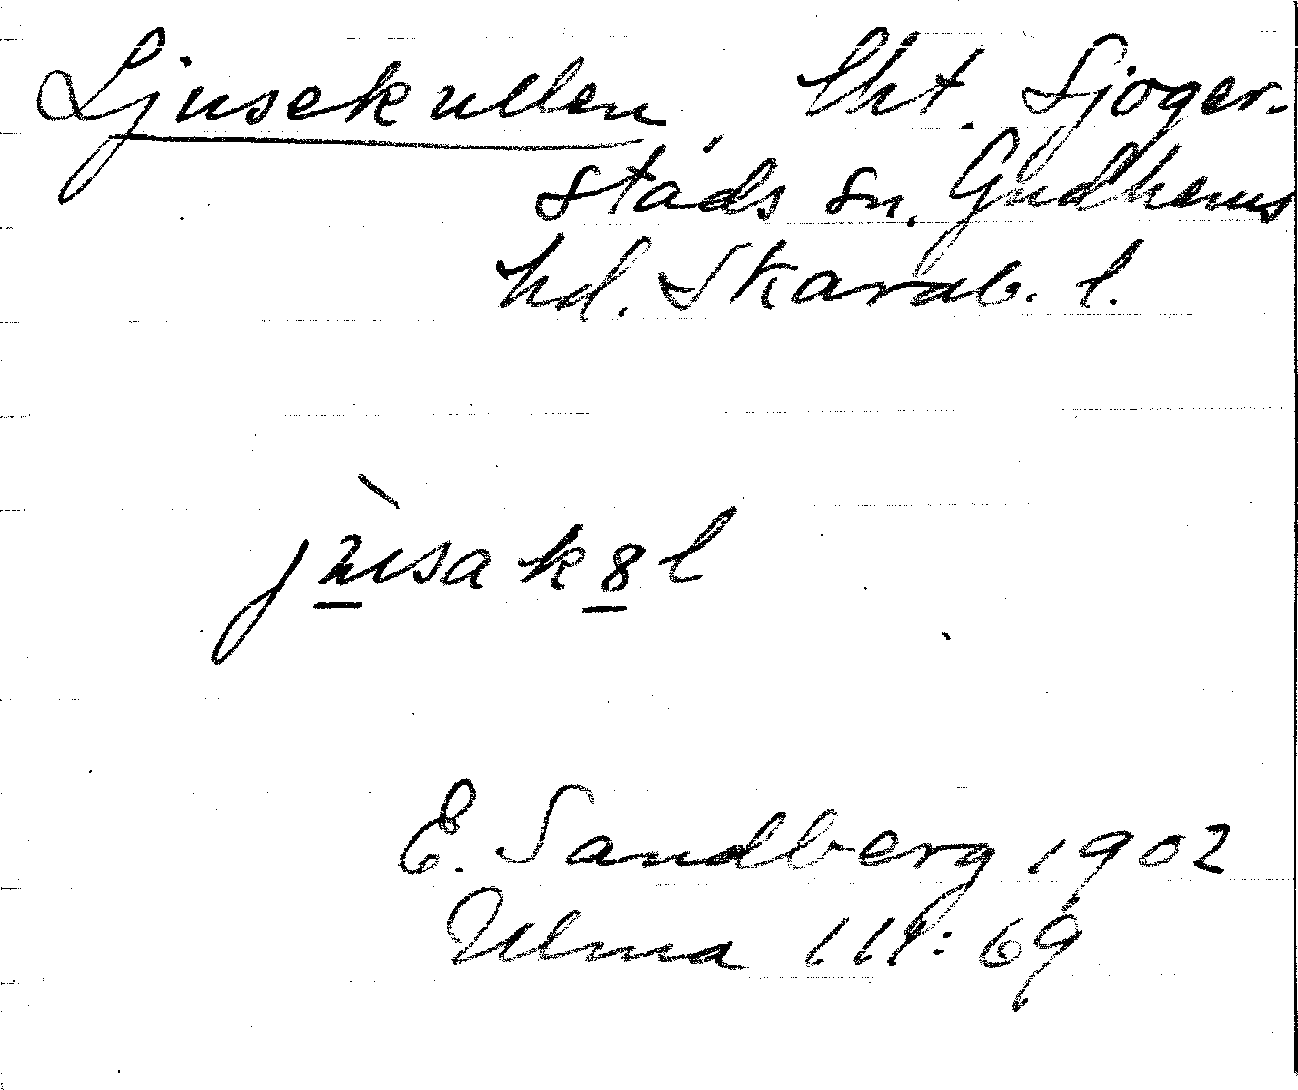 Ljusekullen, lht. Sjöger-
stads sn. Gudhems
hd. Skarab. l.
jùsak8l
E. Sandberg 1902
Ulma 111:69